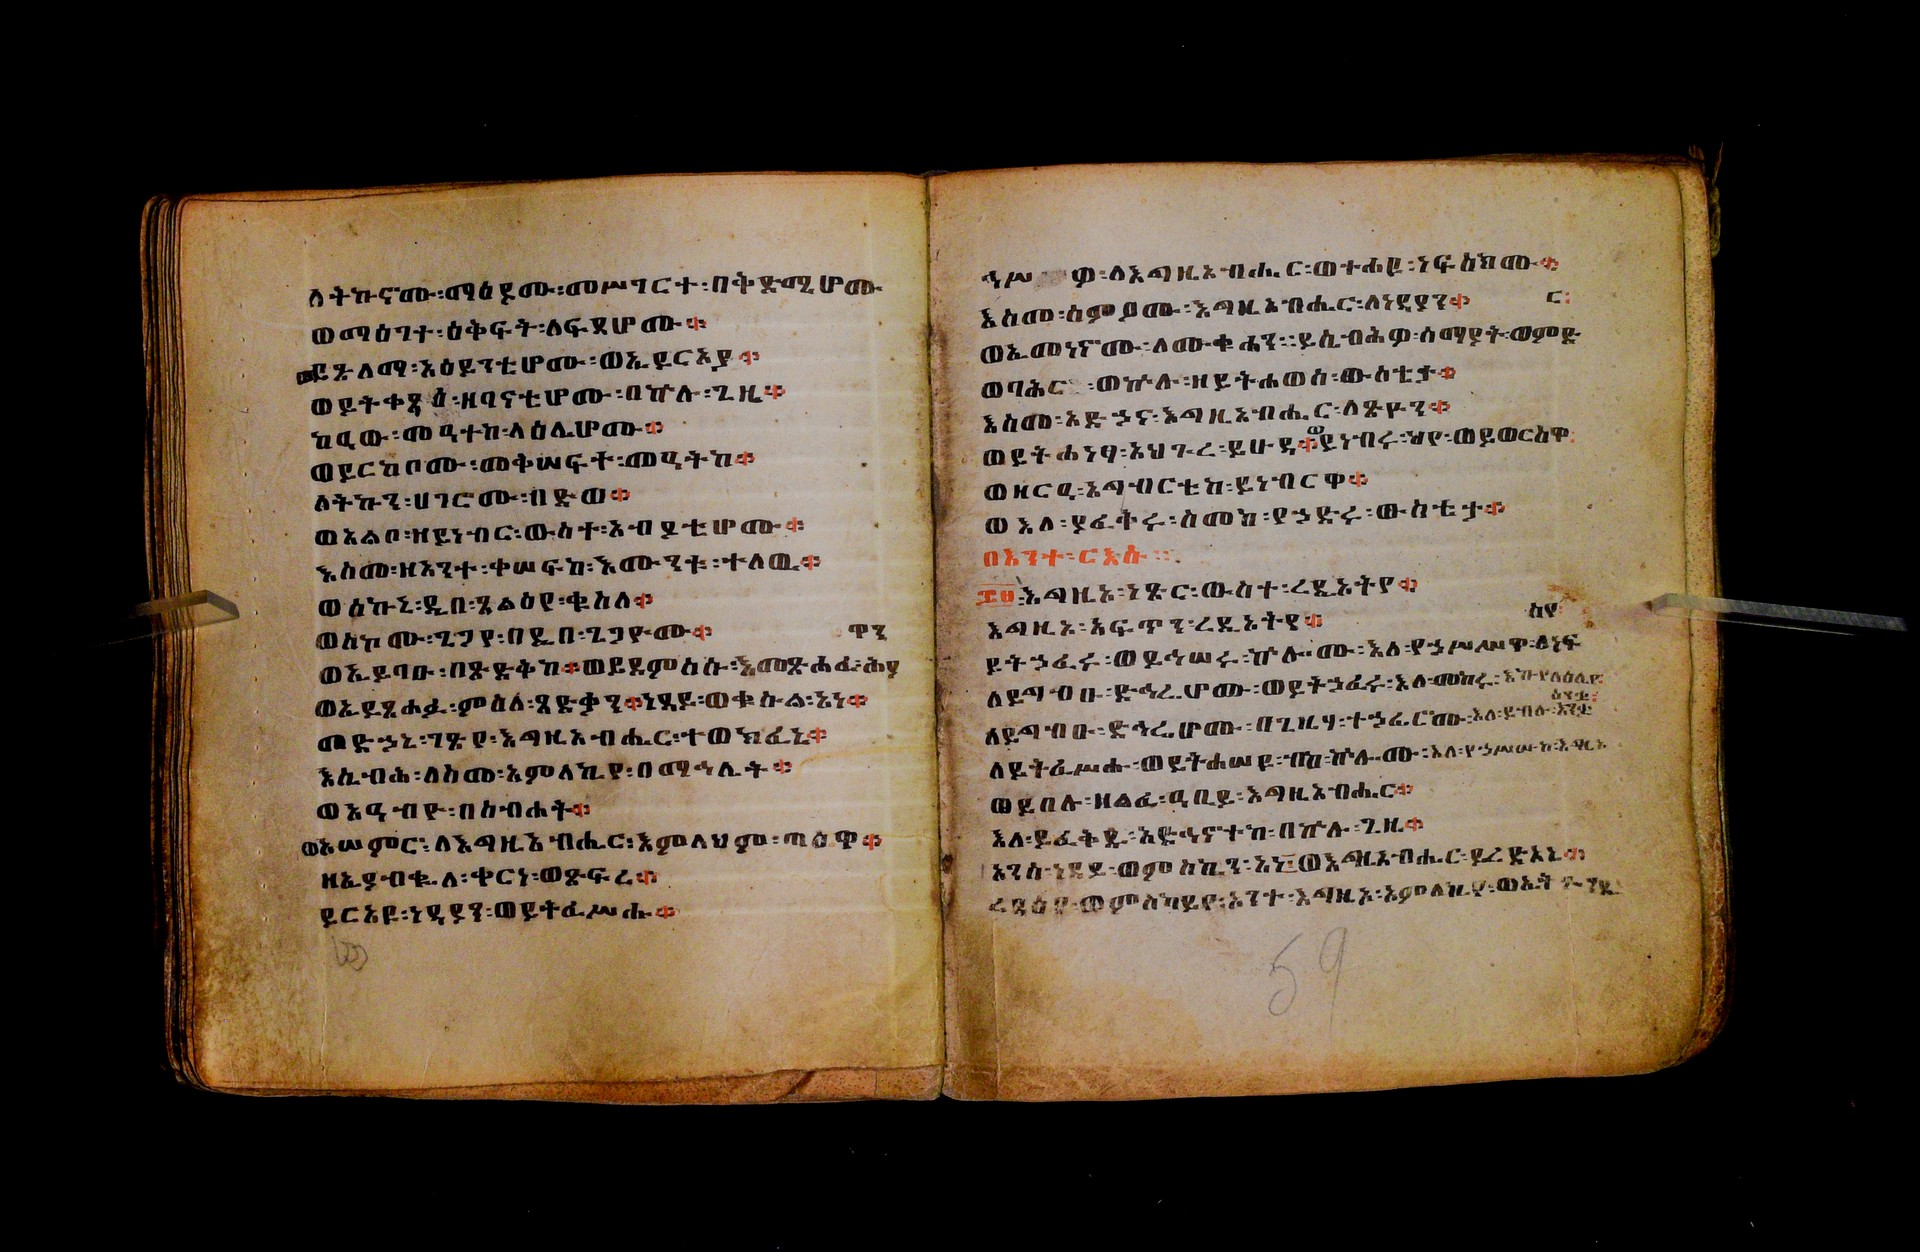 ለትኩኖሙ፡ማዕዶሙ፡መሥገርተ፡በቅድሜሆሙ
ወማዕገተ፡ዕቅፍት፡ለፍዳሆሙ፨
ይጽለማ፡አዕይንቲሆሙ፡ወኢይርአያ፨
ወይትቀጻዕ፡ዘባናቲሆሙ፡በኵሉ፡ጊዜ፨
ከዐው፡መዐተከ፡ላዕሌሆሙ፨
ወይርከቦሙ፡መቅሠፍተ፡መዐትከ፨
ለትኩን፡ሀገሮሙ፡በድወ፨
ወአልቦ፡ዘይነብር፡ውስተ፡አብያቲሆሙ፨
እስመ፡ዘአንተ፡ቀሠፍከ፡እሙንቱ፡ተለዉ፨
ወሰኩኒ፡ዲበ፡ጸልዕየ፡ቁስለ፨
ወስኮሙ፡ጌጋየ፡በዲበ፡ጌጋዮሙ፨ ዋን
ወኢይባኡ፡በጽድቅከ፨ወይደምሰሱ፡እመጽሐፈ፡ሕያ
ወኢይጸሐፉ፡ምስለ፡ጻድቃን፨ነዳይ፡ወቁሱል፡አነ፨
መድኃኒ፡ገጽየ፡እግዚአብሔር፡ተወክፈኒ፨
እሴብሕ፡ለስመ፡አምላኪየ፡በማኅሌት፨
ወአዐብዮ፡በስብሐት፨
ወአሠምሮ፡ለእግዚአብሔር፡እምላህም፡ጣዕዋ፨
ዘኢያብቈለ፡ቀርነ፡ወጽፍረ፨
ይርአዩ፡ነዳያን፡ወይትፈሥሑ፨
ኅሥዎ፡ለእግዚአብሔር፡ወተሐዩ፡ነፍስክሙ፨
እስመ፡ሰምዖሙ፡እግዚአብሔር፡ለነዳያን፨ ር፡
ወኢመነኖሙ፡ለሙቁሐን፡ይሴብሕዎ፡ሰማያት፡ወምድ
ወባሕር፡ወኵሉ፡ዘይትሐወስ፡ውስቴታ፨
እስመ፡አድኃና፡እግዚአብሔር፡ለጽዮን፨
ወይትሐነፃ፡አህጉረ፡ይሁዳ፨ወይነብሩ፡ህየ፡ወይወርስዋ
ወዘርዐ፡አግብርቲከ፡ይነብርዋ፨
ወእለ፡ያፈቅሩ፡ስመከ፡የኃድሩ፡ውስቴታ፨
በእንተ፡ርእሱ፡
፷፱፡እግዚኦ፡ነጽር፡ውስተ፡ረዲኦትየ፨
እግዚኦ፡አፍጥን፡ረዲኦትየ፨ ስየ
ይትኃፈሩ፡ወይኅሠሩ፡ኵሎሙ፡እለ፡የኃሥሥዋ፡ለነፍ
ለይግብኡ፡ድኅሬሆሙ፡ወይትኃፈሩ፡እለ፡መከሩ፡እኩየ፡ላዕሌየ
ለይግብኡ፡ድኅሬሆሙ፡በጊዜሃ፡ተኃፊሮሙ፡እለ፡ይብሉ፡እንቋዕ
ለይትፈሥሑ፡ወይትሐሠዩ፡ብከ፡ኵሎሙ፡እለ፡የኃሥሡከ፡እግዚኦ
ወይበሉ፡ዘልፈ፡ዐቢይ፡እግዚአብሔር፨
እለ፡ይፈቅዱ፡አድኅኖተከ፡በኵሉ፡ጊዜ፨
አንሰ፡ነዳይ፡ወምስኪን፡አነ፡ወእግዚአብሔር፡ይረድአኒ፨
ረዳኢየ፡ወምስካይየ፡አንተ፡እግዚኦ፡አምላኪየ፡ወኢትጐንዲ
59